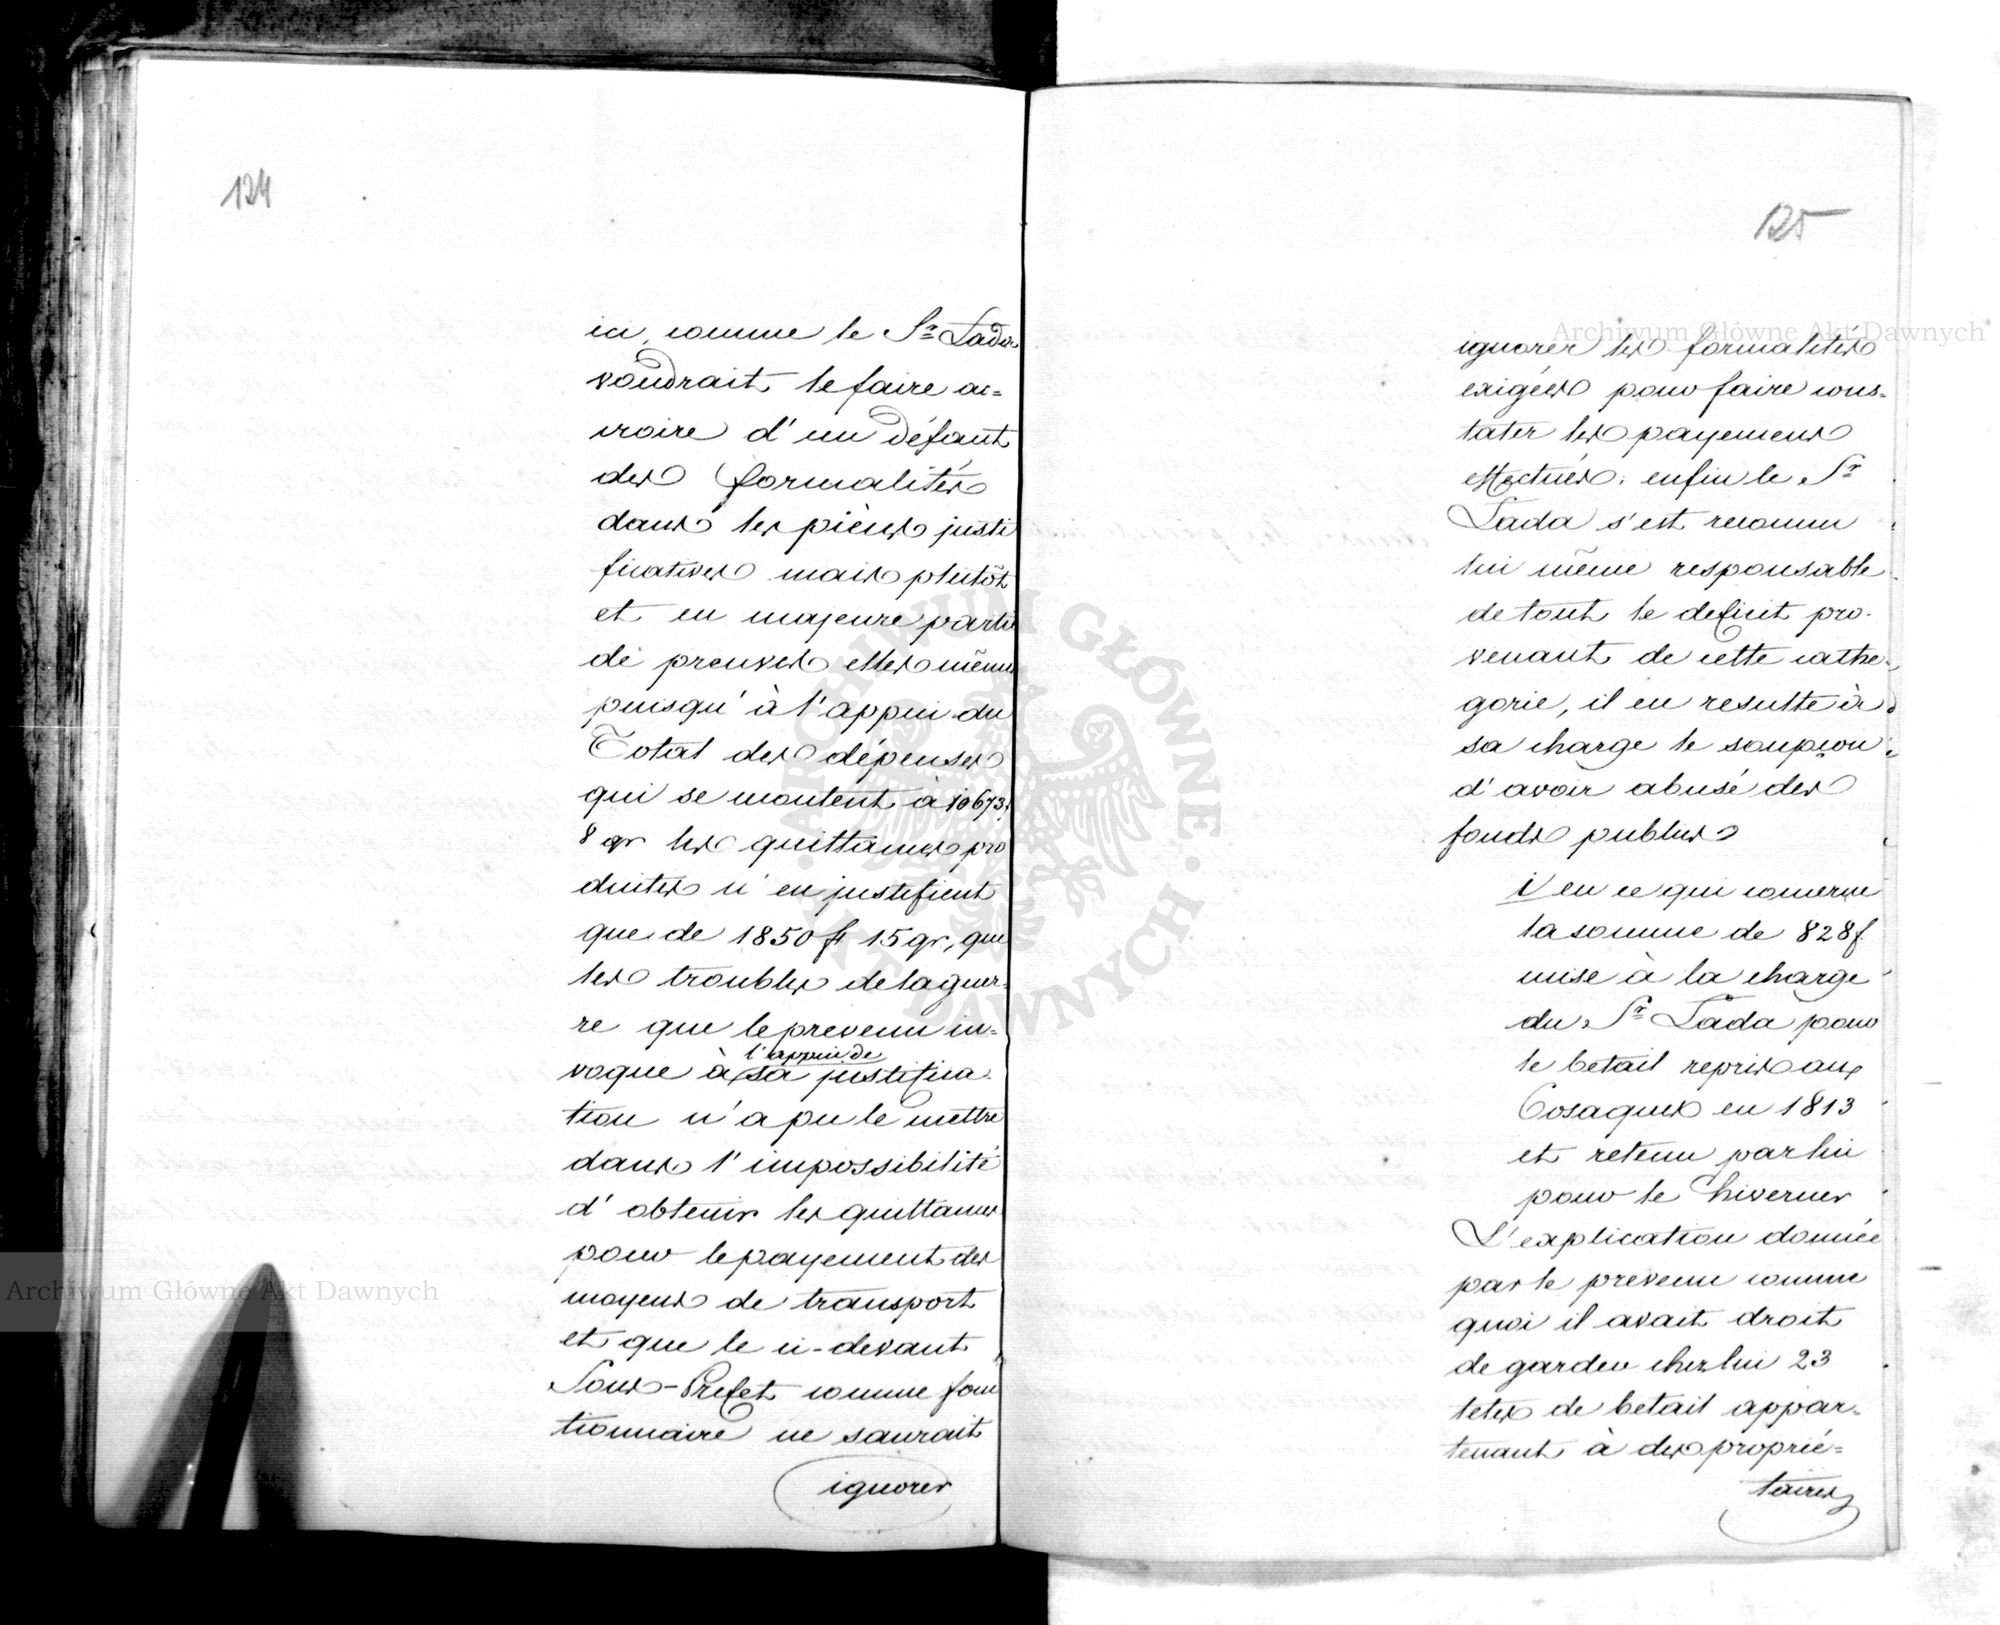 124
ici, comme le Sr Lada
voudrait le faire ac=
croire d'un défaut
des formalités
dans les pièces justi
ficatives mais plutôt
et en majeure partie
de preuves elles mêmes
puisqu'à l'appui du
Total des dépenses
qui se montent à 10673f
8 gr les quittances pro
duites n'en justifient
que de 1850 fl 15 gr, que
les troubles de la guer-
re que le prevenu in-
voque à l'appui de sa justifica-
tion n'a pu le mettre
dans l'impossibilité
d'obtenir les quittances
pour le payement des
moyens de transport
et que le ci-devant
Sous-Prefet comme fonc
tionnaire ne saurait
ignorer
125
ignorer les formalités
exigées pour faire cons-
tater les payemens
effectués: enfin le Sr
Lada s'est reconnu
lui même responsable
de tout le deficit pro-
venant de cette cathe-
gorie, il en resulte à
sa charge le soupçon
d'avoir abusé des
fonds publics
i en ce qui concerne
la somme de 828f
mise à la charge
du Sr Lada pour
le betail repris aux
Cosaques en 1813
et retenu par lui
pour le hiverner
L'explication donnée
par le prevenu comme
quoi il avait droit
de garder chez lui 23
tetes de betail appar-
tenant à des proprié=
taires
Archiwum Główne Akt Dawnych
Archiwum Główne Akt Dawnych
ARCHIWUM GŁÓWNE AKT DAWNYCH